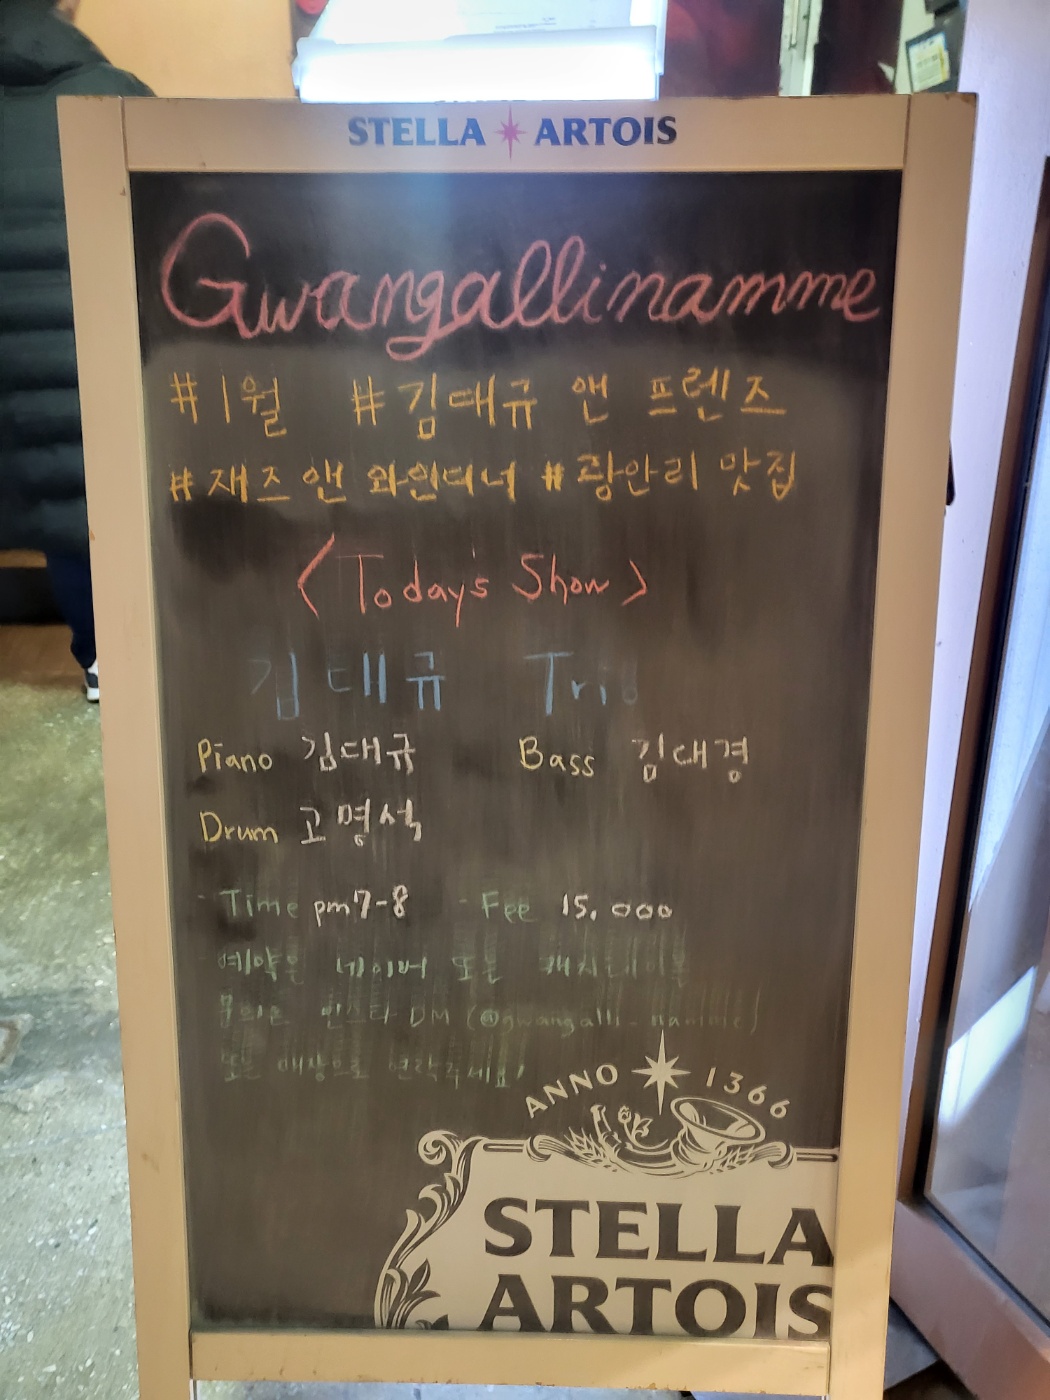 STELLA ARTOIS
Gwangallinamme
#1월 #김대규 앤 프렌즈
#재즈 앤 와인디너 #광안리 맛집
<Today's Show>
김대규 Trio
Piano 김대규 Bass 김대경
Drum 고명석
- Time pm7-8 - Fee 15,000
예약은 네이버 또는 캐치테이블
문의는 인스타 DM (@gwangalli_namme)
또는 매장으로 연락주세요!
ANNO 1366
STELLA
ARTOIS